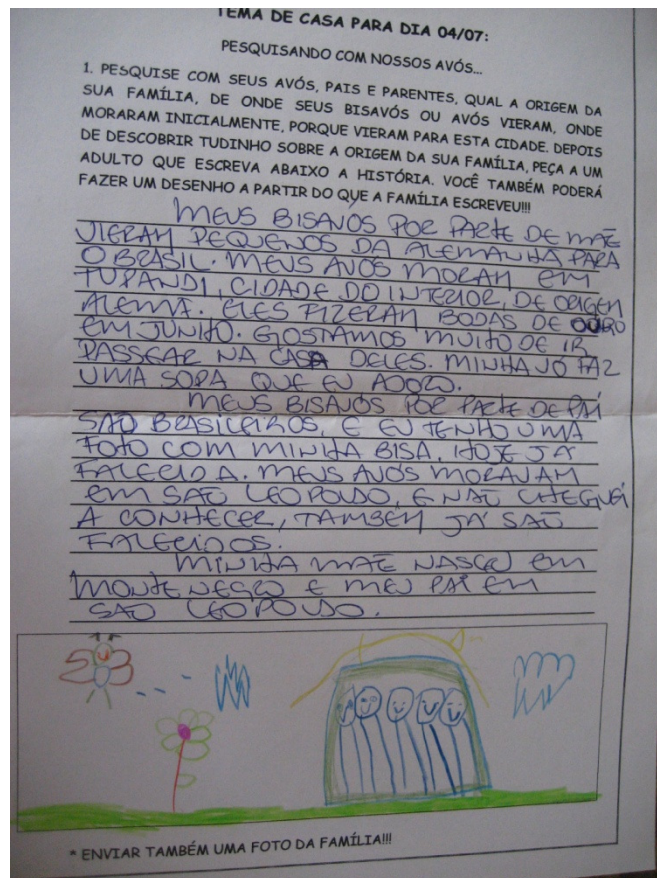 TEMA DE CASA PARA DIA 04/07:
PESQUISANDO COM NOSSOS AVÓS...
1. PESQUISE COM SEUS AVÓS, PAIS E PARENTES, QUAL A ORIGEM DA
SUA FAMÍLIA, DE ONDE SEUS BISAVÓS OU AVÓS VIERAM, ONDE
MORARAM INICIALMENTE, PORQUE VIERAM PARA ESTA CIDADE. DEPOIS
DE DESCOBRIR TUDINHO SOBRE A ORIGEM DA SUA FAMÍLIA, PEÇA A UM
ADULTO QUE ESCREVA ABAIXO A HISTÓRIA. VOCÊ TAMBÉM PODERÁ
FAZER UM DESENHO A PARTIR DO QUE A FAMÍLIA ESCREVEU!!!
MEUS BISAVÓS POR PARTE DE MÃE
VIERAM PEQUENOS DA ALEMANHA PARA
O BRASIL. MEUS AVÓS MORAM EM
TUPANDI, CIDADE DO INTERIOR, DE ORIGEM
ALEMÃ. ELES FIZERAM BODAS DE OURO
EM JUNHO. GOSTAMOS MUITO DE IR
PASSEAR NA CASA DELES. MINHA VÓ FAZ
UMA SOPA QUE EU ADORO.
MEUS BISAVÓS POR PARTE DE PAI
SÃO BRASILEIROS, E EU TENHO UMA
FOTO COM MINHA BISA, HOJE JÁ
FALECIDA. MEUS AVÓS MORAVAM
EM SÃO LEOPOLDO, E NÃO CHEGUEI
A CONHECER, TAMBÉM JÁ SÃO
FALECIDOS.
MINHA MÃE NASCEU EM
MONTENEGRO E MEU PAI EM
SÃO LEOPOLDO.
* ENVIAR TAMBÉM UMA FOTO DA FAMÍLIA!!!